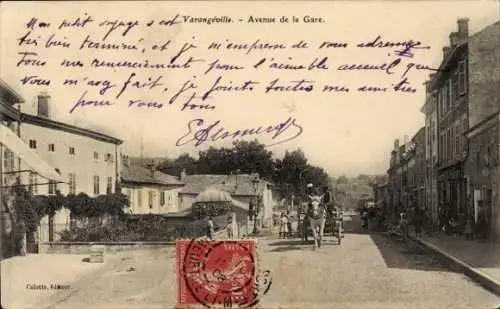 Varangéville. - Avenue de la Gare.
Mon petit voyage s'est
très bien terminé, et je m'empresse de vous adresser
tous mes remerciements pour l'aimable accueil que
vous m'avez fait, je joints toutes mes amitiés
pour vous tous
Colette, éditeur.